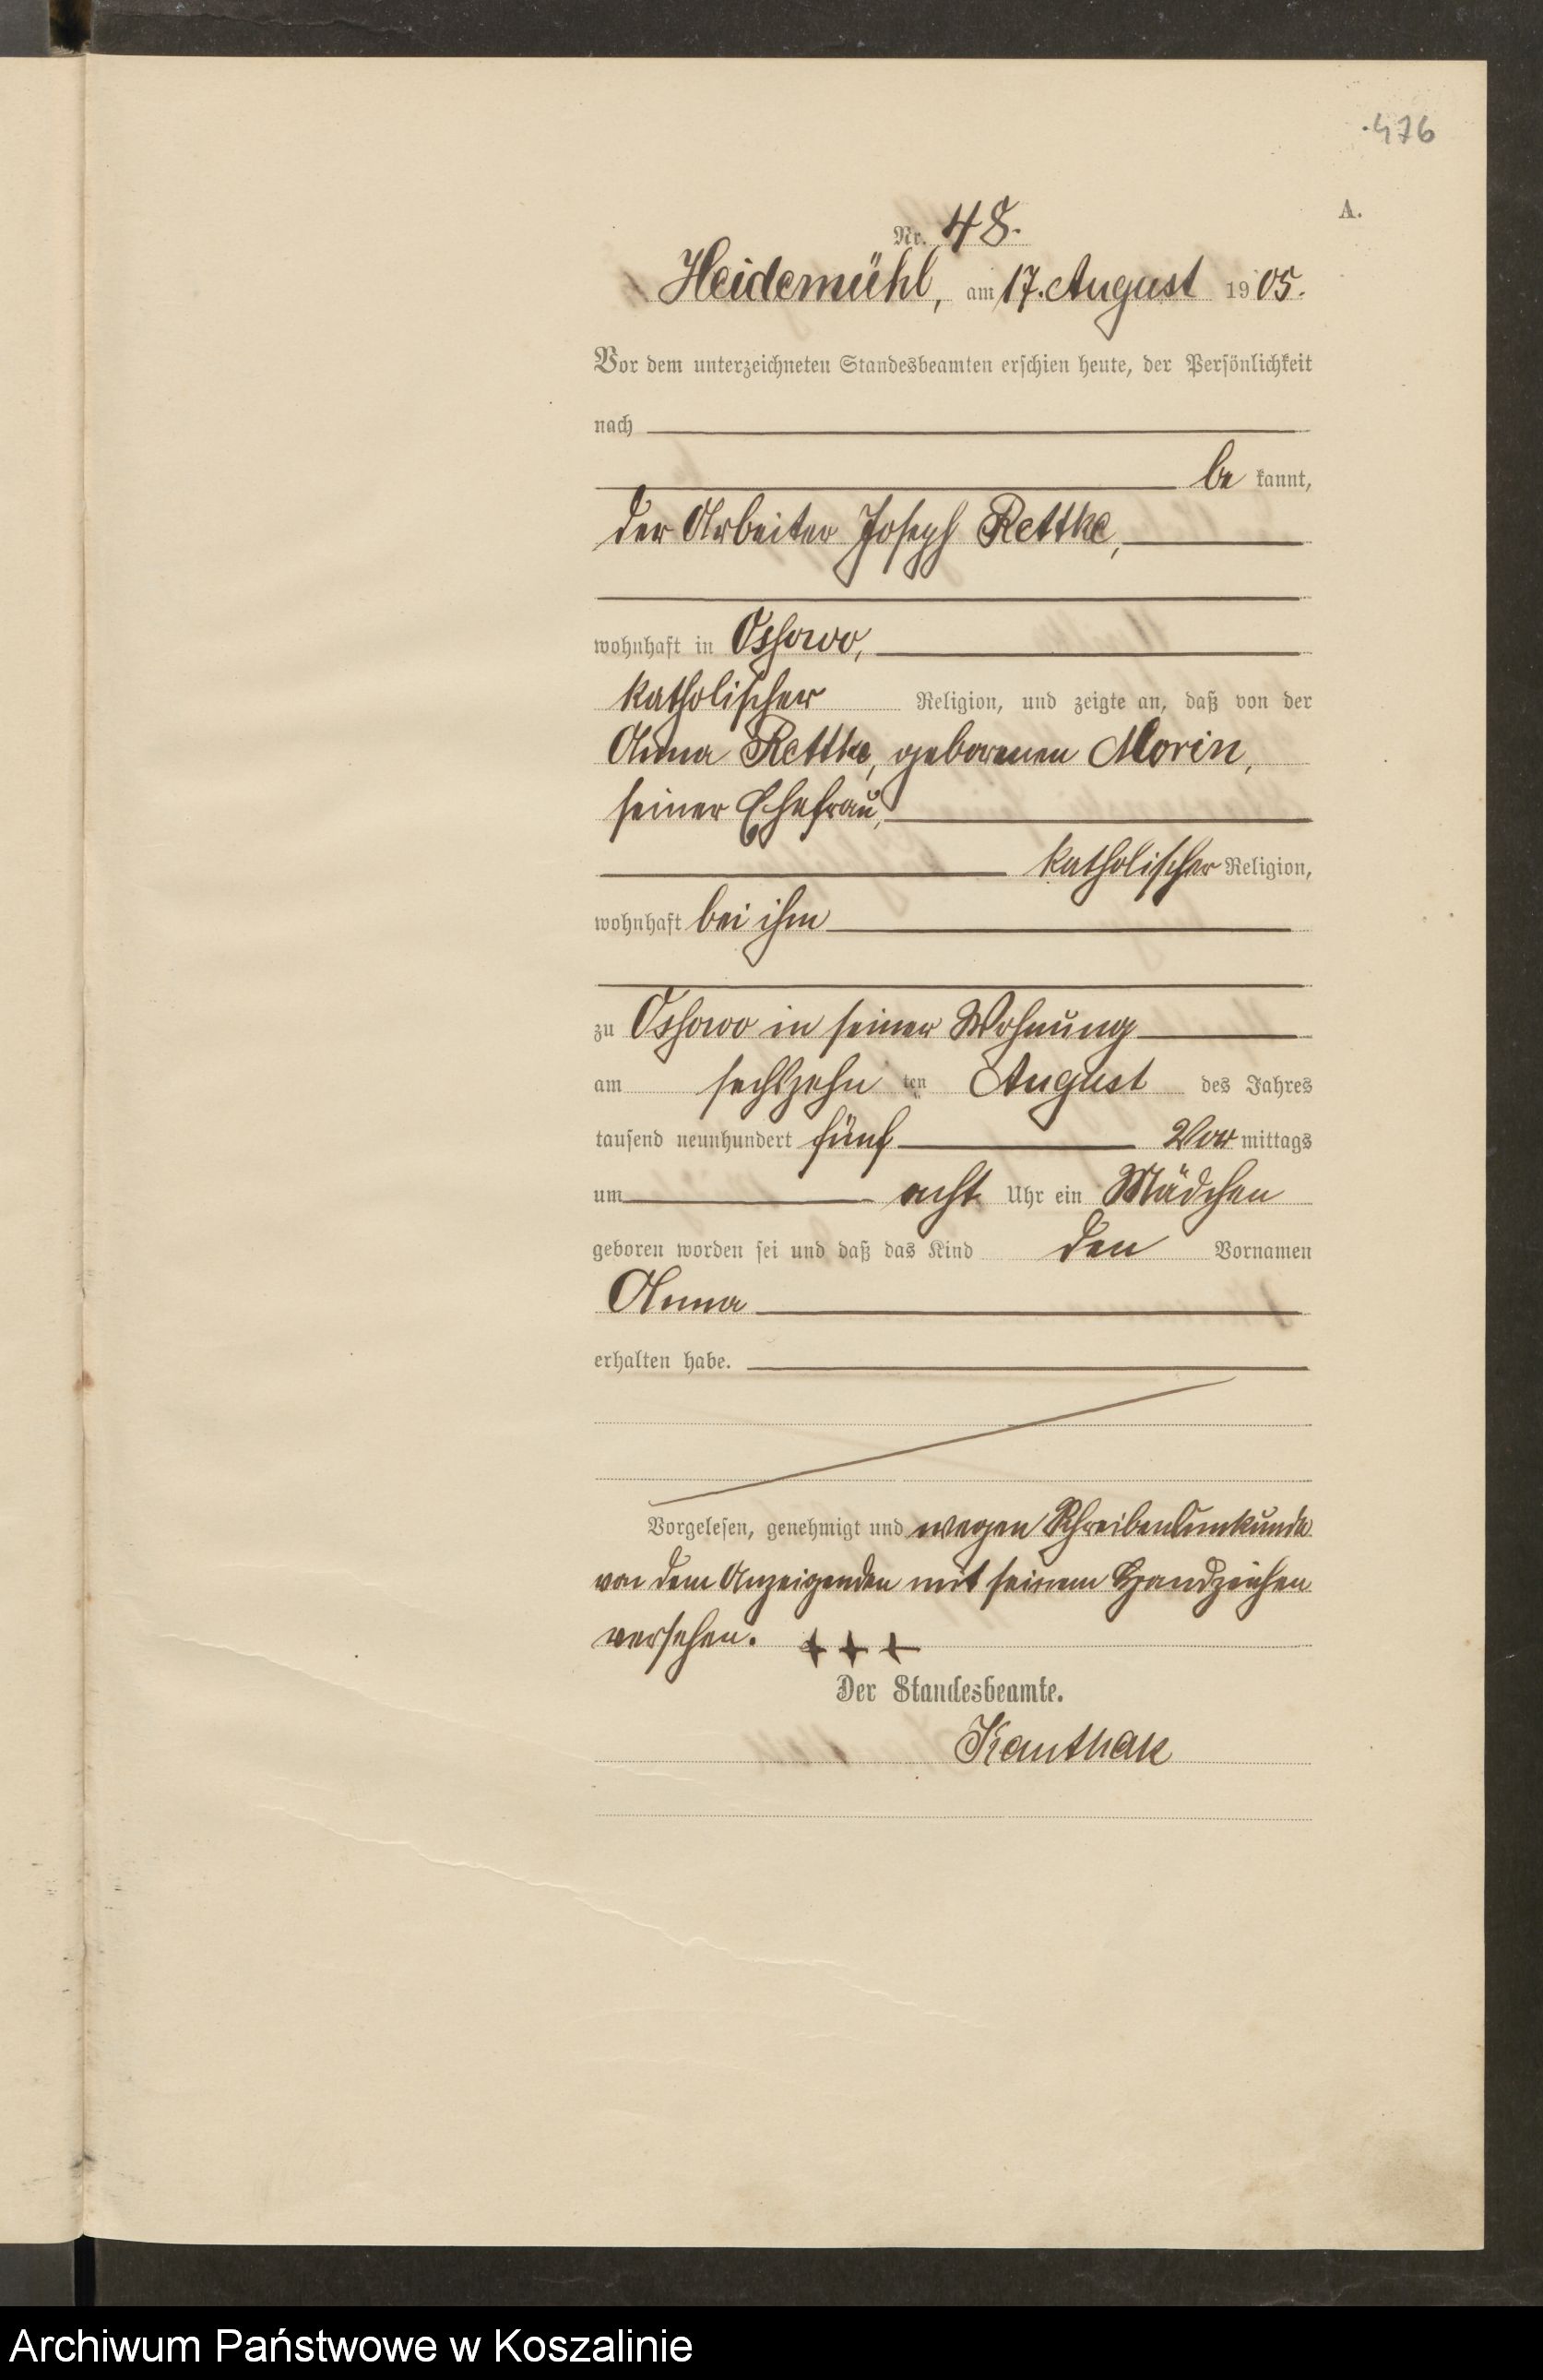 476
A.
Nr. 48.
Heidemühl, am 17. August 1905.
Vor dem unterzeichneten Standesbeamten erschien heute, der Persönlichkeit
nach
be kannt,
der Arbeiter Joseph Rettke,
wohnhaft in Ossowo,
katholischer Religion, und zeigte an, daß von der
Anna Rettke, geborenen Morin,
seiner Ehefrau,
katholischer Religion,
wohnhaft bei ihm
zu Ossowo in seiner Wohnung
am sechszehn ten August des Jahres
tausend neunhundert fünf Vor mittags
um acht Uhr ein Mädchen
geboren worden sei und daß das Kind den Vornamen
Anna
erhalten habe.
Vorgelesen, genehmigt und wegen Schreibensunkunde
von dem Anzeigenden mit seinem Handzeichen
versehen. + + +
Der Standesbeamte.
Kanthak
Archiwum Państwowe w Koszalinie